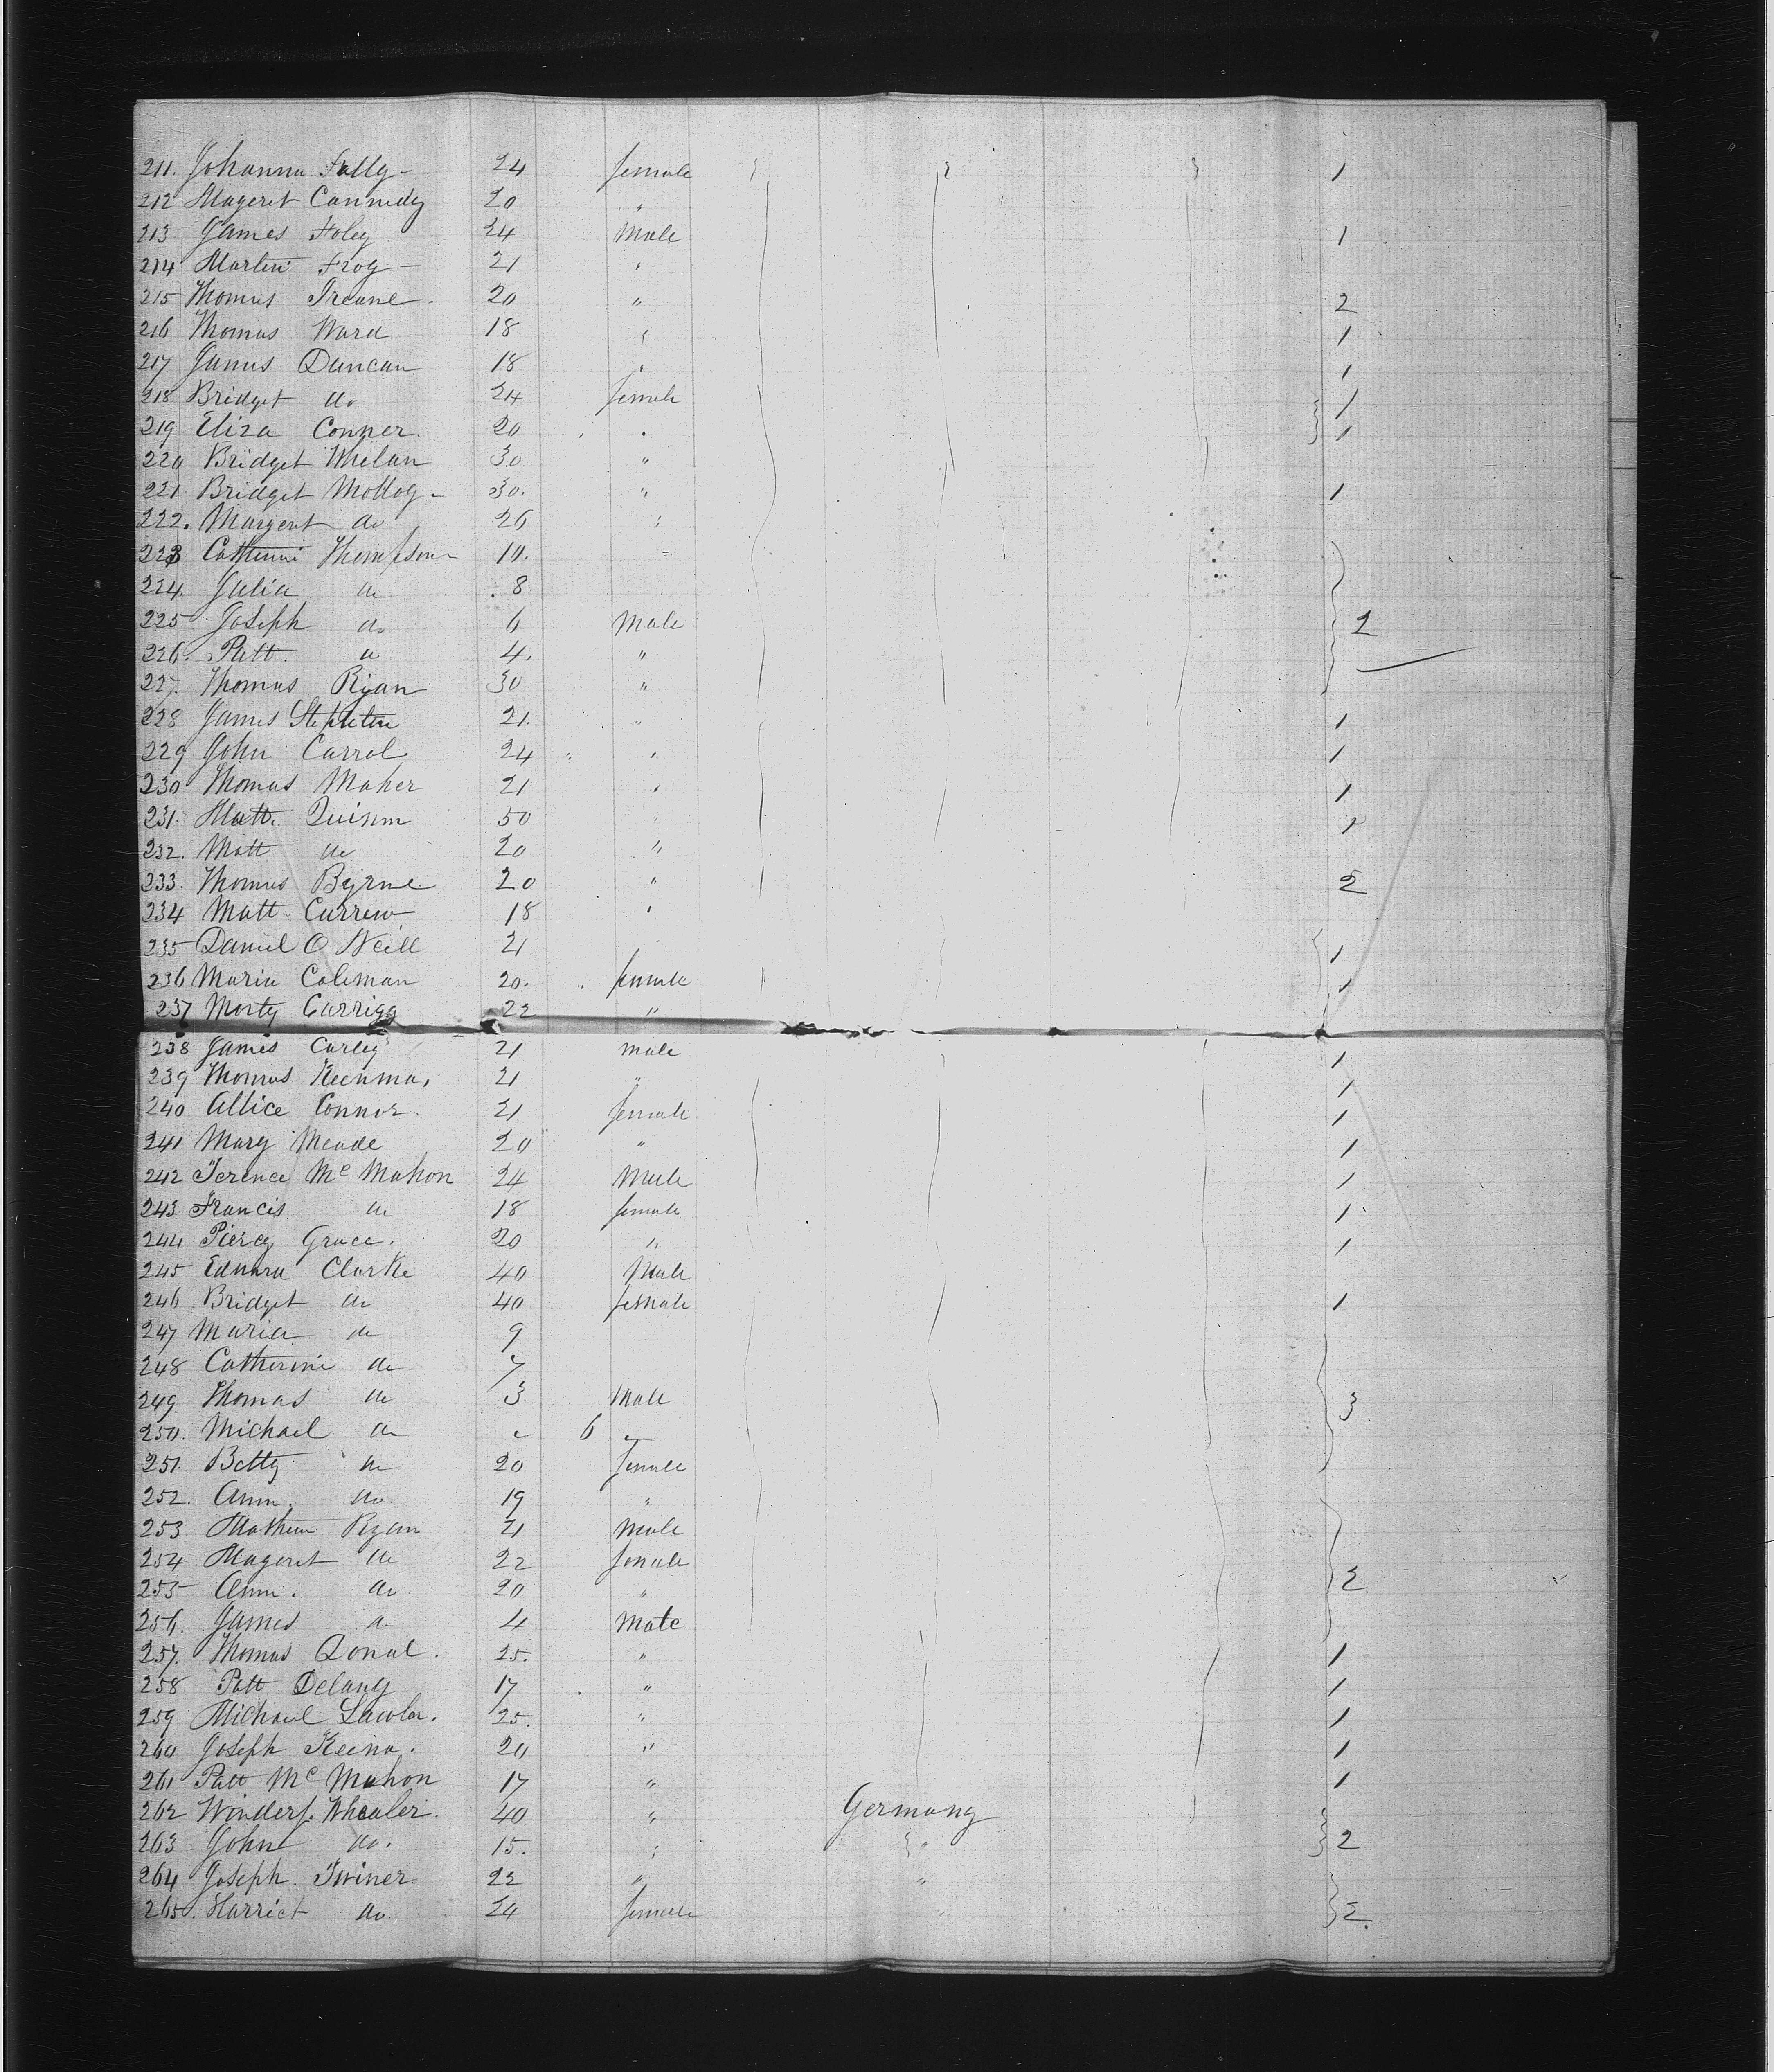 211. Johanna Fally - 24 female 1
212 Mageret Cannedy 20 "
213 James Foley 24 Male 1
214 Martin Froy - 21 "
215 Thomas Treane. 20 " 2
216 Thomas Ward 18 " 1
217 James Duncan 18 " 1
218 Bridget do 24 female 1
219 Eliza Conner. 20 " 1
220 Bridget Whelan 30 "
221 Bridget Molloy - 30. " 1
222. Margeret do 26 "
223 Catherine Thompson - 10. "
224. Julia do 8
225 Joseph do 6 Male 2
226. Patt. do 4. "
227. Thomas Ryan 30 "
228 James Stepleton 21. " 1
229 John Carrol 24 " 1
230 Thomas Maher 21 " 1
231. Matt. Quinn 50 " 1
232. Matt do 20 "
233. Thomas Byrne 20 " 2
234 Matt. Currew 18 "
235 Daniel O Neill 21 1
236 Maria Coleman 20. female 1
237 Morty Carrigg 22 "
238 James Curley 21 male 1
239 Thomas Keenma, 21 " 1
240 Allice Connor. 21 female 1
241 Mary Meade 20 " 1
242 Terence Mc Mahon 24 Male 1
243. Francis do 18 female 1
244 Piercy Grace. 20 " 1
245 Edward Clarke 40 Male
246 Bridget do 40 female 1
247 Maria do 9
248 Catherine do 7
249. Thomas do 3 Male 3
250. Michael do " 6 "
251. Betty do 20 female
252. Ann. do 19 "
253 Mathew Ryan 21 Male
254 Mageret do 22 female
255 Ann. do 20 " 2
256. James do 4 Male
257. Thomas Donal. 25. " 1
258 Patt Delany 17 " 1
259 Michael Lawlor. 25. " 1
260 Joseph Keena. 20 " 1
261 Patt Mc Mahon 17 " 1
262 Winders. Whealer. 40 " Germany
263 John do. 15. " " 2
264 Joseph. Twiner 22 " "
265. Harriet do 24 female 2.